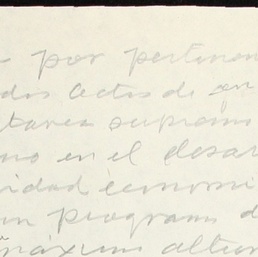 por pertinen
dos actos de
tarea suprema
mo en el desar
idad economi
un programa d
máximo altru